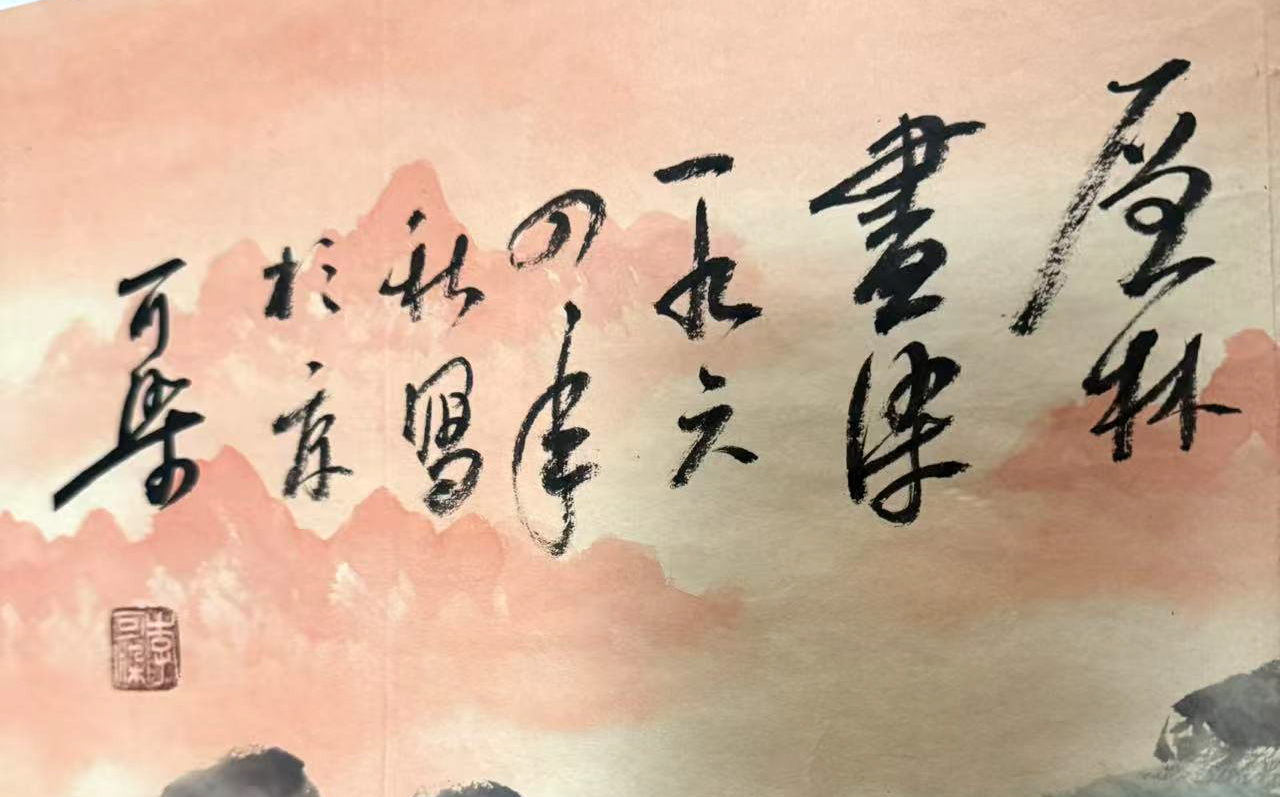 層林
盡染
一九六
四年
秋寫
於京
可染
李可染